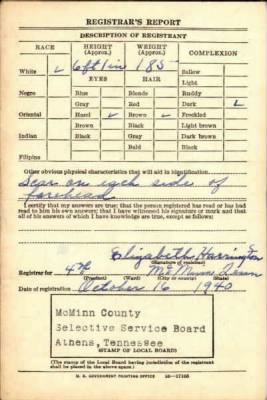 REGISTRAR'S REPORT
DESCRIPTION OF REGISTRANT
RACE HEIGHT (Approx.) WEIGHT (Approx.) COMPLEXION
White ✓ 6ft 1in 185 Sallow
EYES HAIR Light
Negro Blue Blonde Ruddy
Gray Red Dark ✓
Oriental Hazel ✓ Brown ✓ Freckled
Brown Black Light brown
Indian Black Gray Dark brown
Bald Black
Filipino
Other obvious physical characteristics that will aid in identification
Scar on each side of
forehead
I certify that my answers are true; that the person registered has read or has had
read to him his own answers; that I have witnessed his signature or mark and that
all of his answers of which I have knowledge are true, except as follows:
Elizabeth Harrington
(Signature of registrar)
Registrar for 4th McMinn Tenn
(Precinct) (Ward) (City or county) (State)
Date of registration October 16 1940
McMinn County
Selective Service Board
Athens, Tennessee
(STAMP OF LOCAL BOARD)
(The stamp of the Local Board having jurisdiction of the registrant
shall be placed in the above space.)
U. S. GOVERNMENT PRINTING OFFICE 16—17105